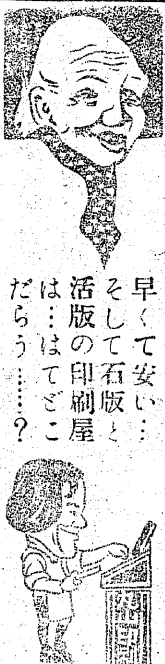 早くて安い…
そして石版と
活版の印刷屋
は…はてどこ
だらう……？